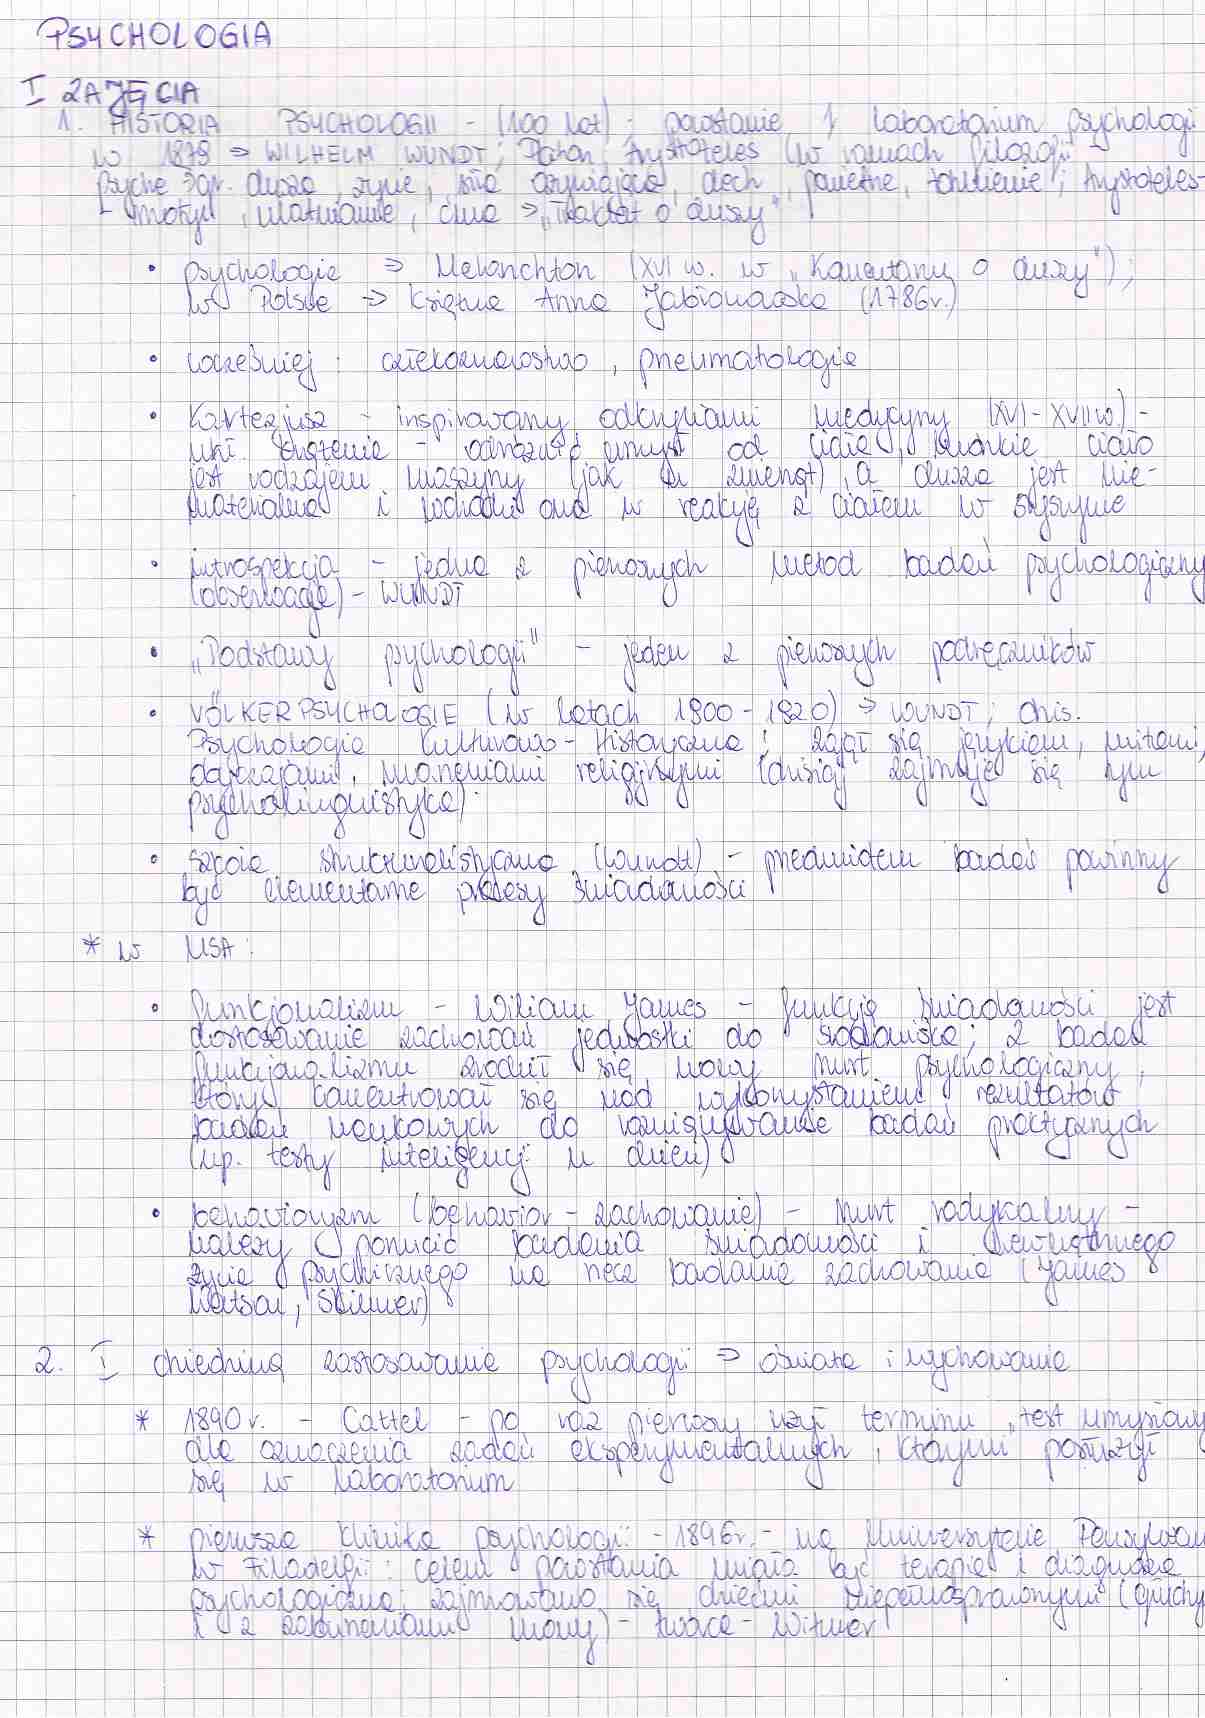 PSYCHOLOGIA
I ZAJĘCIA
1. HISTORIA PSYCHOLOGII - (100 lat) : powstanie 1 laboratorium psychologii
w 1879 => WILHELM WUNDT; Platon, Arystoteles (w ramach filozofii
Psyche => gr. dusza, życie, siła ożywiająca, dech, powietrze, tchnienie; Arystoteles-
- motyl, ćma => "Traktat o duszy"
• psychologia => Melanchton (XVI w. w "Komentarzu o duszy");
w Polsce => Księżna Anna Jabłonowska (1786r.)
• wcześniej : człekoznawstwo, pneumatologia
• Kartezjusz - inspirowany odkryciami medycyny (XVI-XVII w.) -
ukł. krążenia - odróżnił umysł od ciała, ludzkie ciało
jest rodzajem maszyny (jak u zwierząt), a dusza jest nie-
materialna i wchodzi ona w reakcję z ciałem w szyszynce
• introspekcja - jedna z pierwszych metod badań psychologiczny
(obserwacja) - WUNDT
• "Podstawy psychologii" - jeden z pierwszych podręczników
• VÖLKERPSYCHOLOGIE (w latach 1900-1920) => WUNDT; dziś.
Psychologia Kulturowo-Historyczna; zajął się językiem, mitami,
obyczajami, wierzeniami religijnymi (dzisiaj zajmuje się tym
psycholingwistyka)
• szkoła strukturalistyczna (Wundt) - przedmiotem badań powinny
być elementarne procesy świadomości
* w USA:
• funkcjonalizm - Wiliam James - funkcją świadomości jest
dostosowanie zachowań jednostki do środowiska; z badań
funkcjonalizmu zrodził się nowy nurt psychologiczny,
który koncentrował się nad wykorzystaniem rezultatów
badań naukowych do rozwiązywania badań praktycznych
(np. testy inteligencji u dzieci)
• behawioryzm (behavior - zachowanie) - nurt radykalny -
należy porzucić badania świadomości i wewnętrznego
życia psychicznego na rzecz badania zachowania (James
Watson, Skinner)
2. I dziedziną zastosowania psychologii => oświata i wychowanie
* 1890r. - Cattel - po raz pierwszy użył terminu "test umysłowy
dla oznaczenia zadań eksperymentalnych, którymi posłużył
się w laboratorium
* pierwsza klinika psychologii - 1896r. - na Uniwersytecie Pensylwan
w Filadelfii : celem powstania miała być terapia i diagnoza
psychologiczna; zajmowano się dziećmi niepełnosprawnymi (głuchy
i z zaburzeniami mowy) - twórca - Witmer